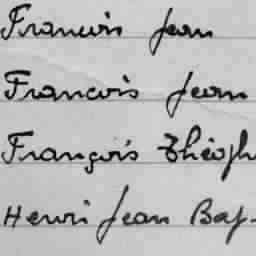 Francois Jean
Francois Jean
François Théoph
Henri Jean Bap.